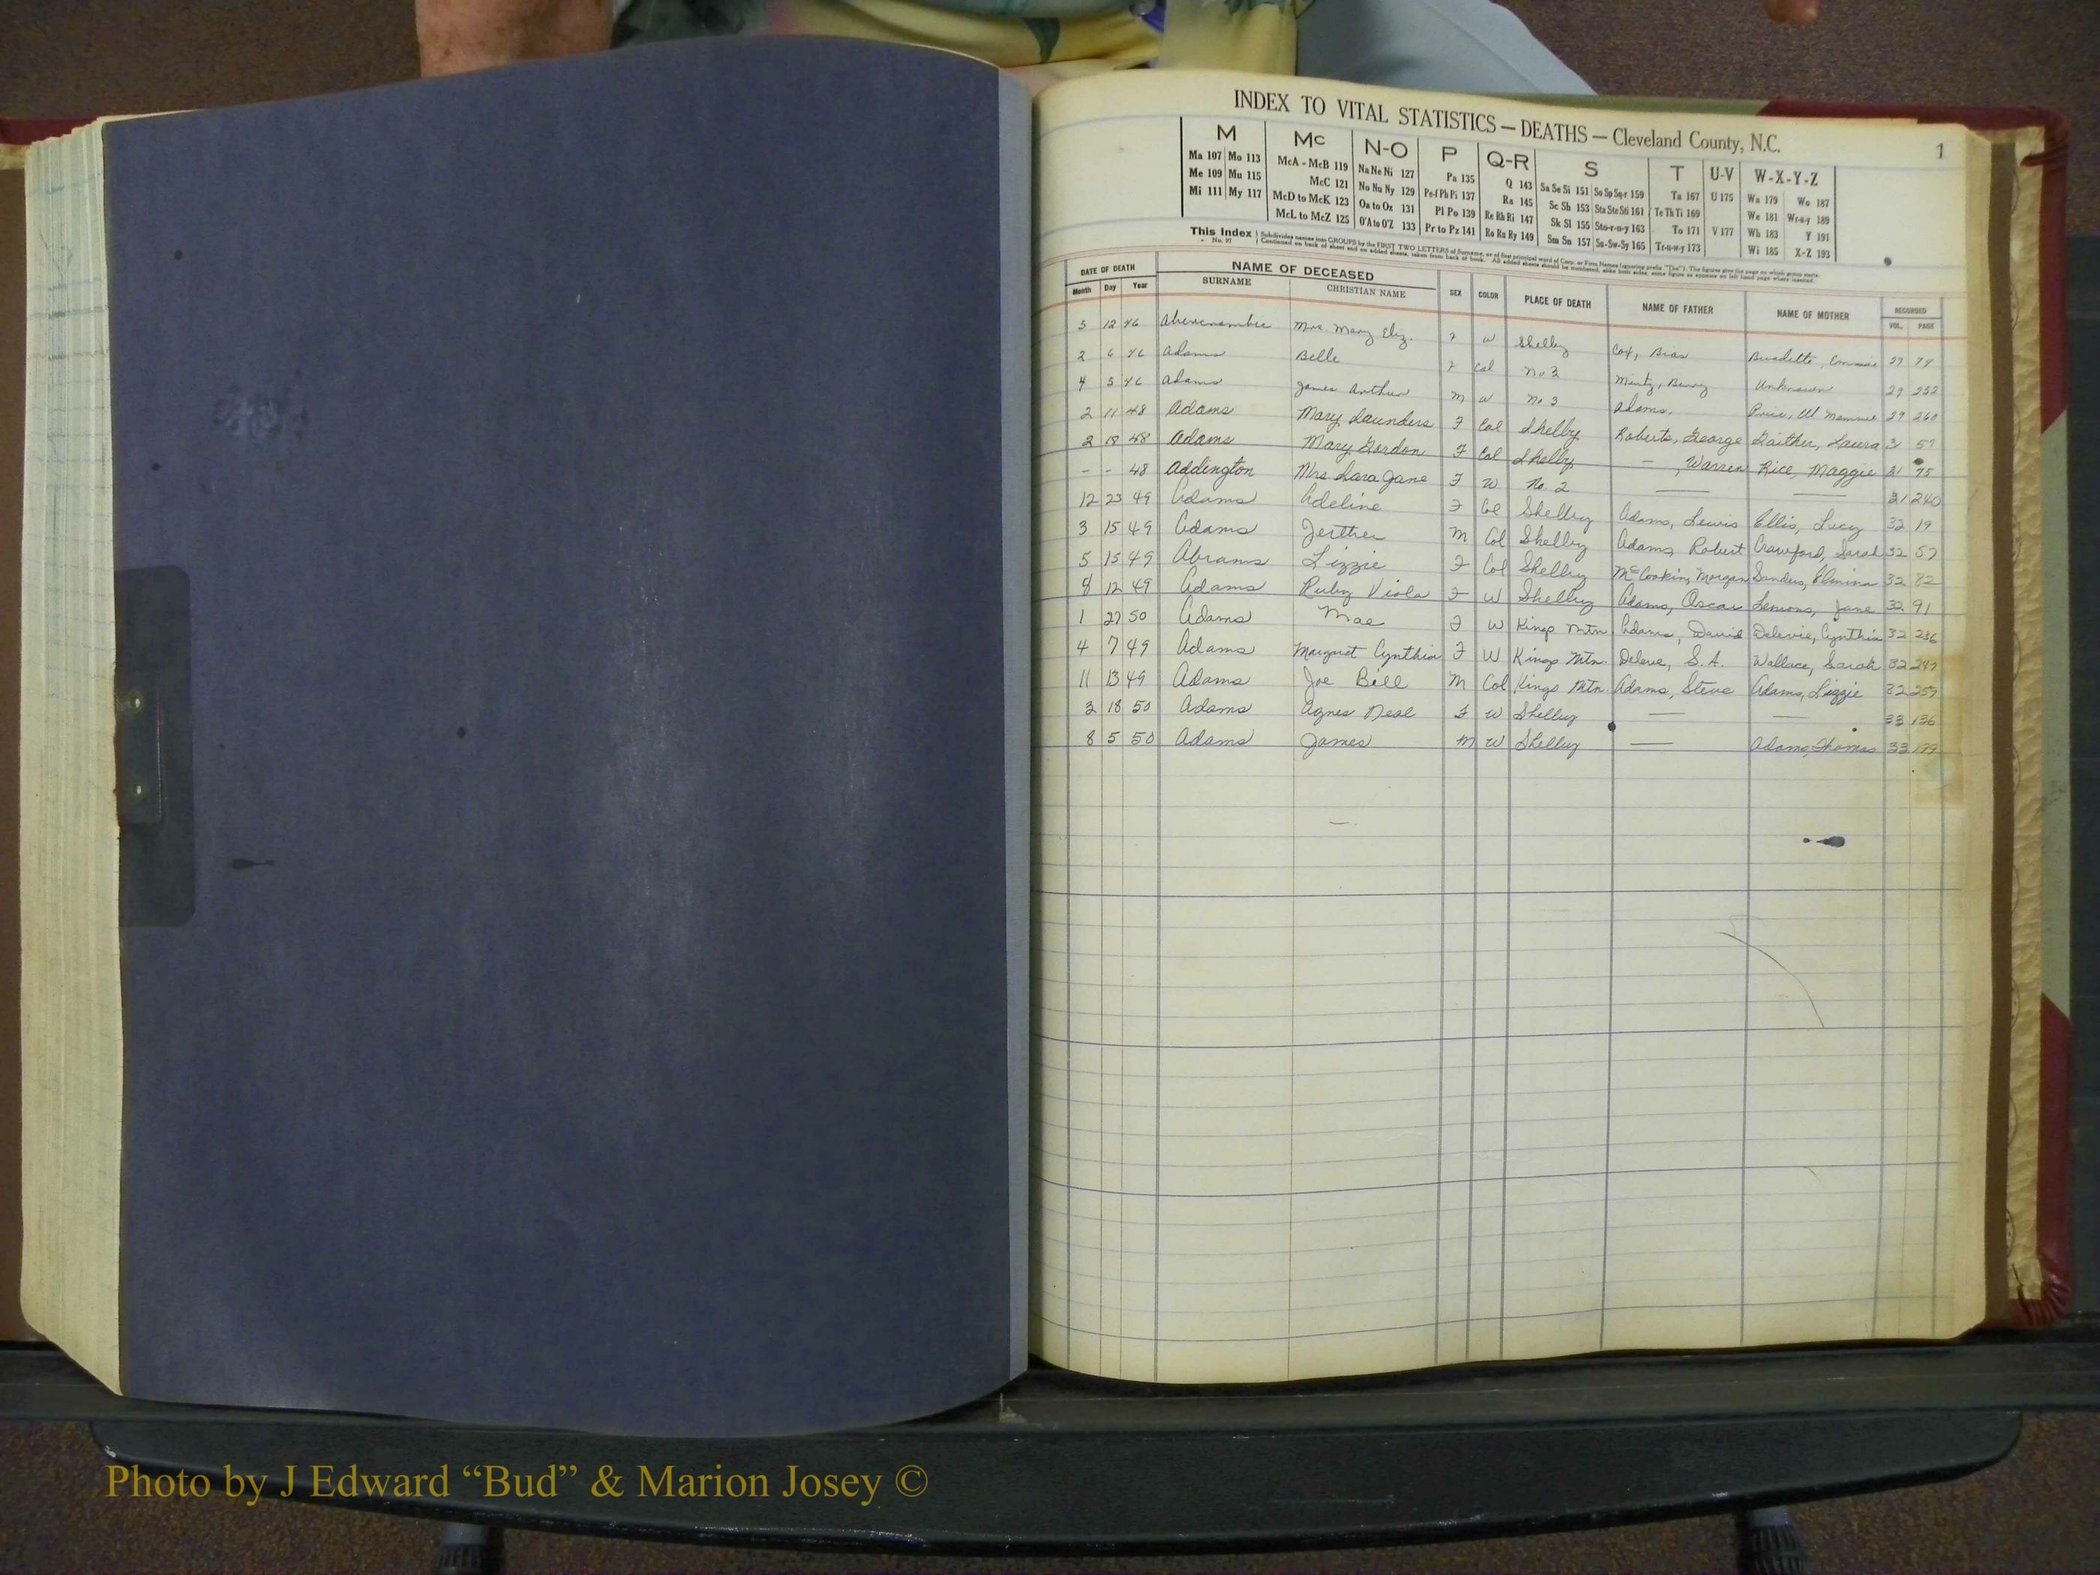 INDEX TO VITAL STATISTICS — DEATHS — Cleveland County, N.C. 1
M Mc N-O P Q-R S T U-V W-X-Y-Z
Ma 107 Mo 113 McA - McB 119 Na Ne Ni 127 Pa 135 Q 143 Sa Se Si 151 So Sp Sq-r 159 Ta 167 U 175 Wa 179 Wo 187
Me 109 Mu 115 McC 121 No Nu Ny 129 Pe-f Ph Pi 137 Ra 145 Sc Sh 153 Sta Ste Sti 161 Te Th Ti 169 We 181 Wr-u-y 189
Mi 111 My 117 McD to McK 123 Oa to Oz 131 Pl Po 139 Re Rh Ri 147 Sk Sl 155 Sto-r-u-y 163 To 171 V 177 Wh 183 Y 191
McL to McZ 125 O'A to O'Z 133 Pr to Pz 141 Ro Ru Ry 149 Sm Sn 157 Su-Sw-Sy 165 Tr-u-w-y 173 Wi 185 X-Z 193
This Index Subdivides names into GROUPS by the FIRST TWO LETTERS of Surname, or of first principal word of Corp. or Firm Names (ignoring prefix "The"). The figures give the page on which group starts.
No. 97 Continued on back of sheet and on added sheets, taken from back of book. All added sheets should be numbered, alike both sides, same figure as appears on left hand page where inserted.
DATE OF DEATH NAME OF DECEASED SEX COLOR PLACE OF DEATH NAME OF FATHER NAME OF MOTHER RECORDED
Month Day Year SURNAME CHRISTIAN NAME VOL. PAGE
5 12 46 Abercrombie Mrs. Mary Eliz. F W Shelby Cox, Bras Burdette, 29 79
2 6 46 Adams Belle F Col No 3 Mintz, Berry Unknown 29 252
4 5 46 Adams James Arthur M W No 3 Adams, Price, 29 260
2 11 48 Adams Mary Saunders F Col Shelby Roberts, George Gaither, Laura 31 57
2 18 48 Adams Mary Gordon F Col Shelby — , Warren Rice, Maggie 31 75
- - 48 Addington Mrs Sara Jane F W No. 2 — — 31 240
12 23 49 Adams Adeline F Col Shelby Adams, Lewis Ellis, Lucy 32 19
3 15 49 Adams Jerther M Col Shelby Adams, Robert Crawford, Sarah 32 57
5 15 49 Abrams Lizzie F Col Shelby Morgan Sanders, Elmina 32 82
8 12 49 Adams Ruby Viola F W Shelby Adams, Oscar Lemons, Jane 32 91
1 27 50 Adams Mae F W Kings Mtn. Adams, David Delevie, Cynthia 32 236
4 7 49 Adams Margaret Cynthia F W Kings Mtn. Deleve, S. A. Wallace, Sarah 32 247
11 13 49 Adams Joe Bill M Col Kings Mtn. Adams, Steve Adams, Lizzie 32 257
3 18 50 Adams Agnes Neal F W Shelby — — 33 136
8 5 50 Adams James M W Shelby — Adams, Thomas 33 199
Photo by J Edward “Bud” & Marion Josey ©